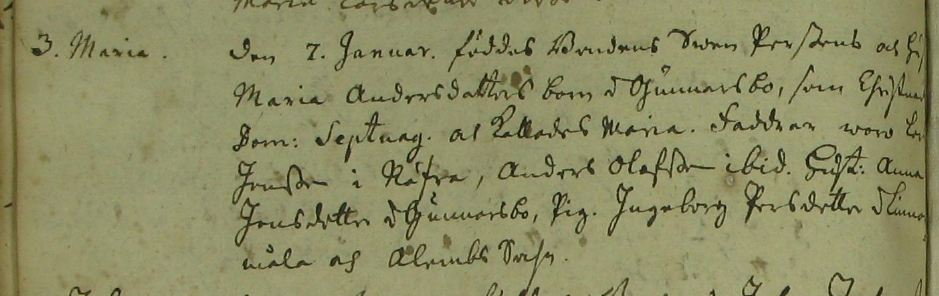 3. Maria. Den 7. Januar. föddes Bondens Swen Perssons och
Maria Andersdotters barn i Gunnarsbo, som Christnad
Dom: Septuag. och kallades Maria. Faddrar woro
Jonsson i Näfra, Anders Olofsson ibid. Hust: Anna
Jonsdotter i Gunnarsbo, Pig. Ingeborg Persdotter
måla och